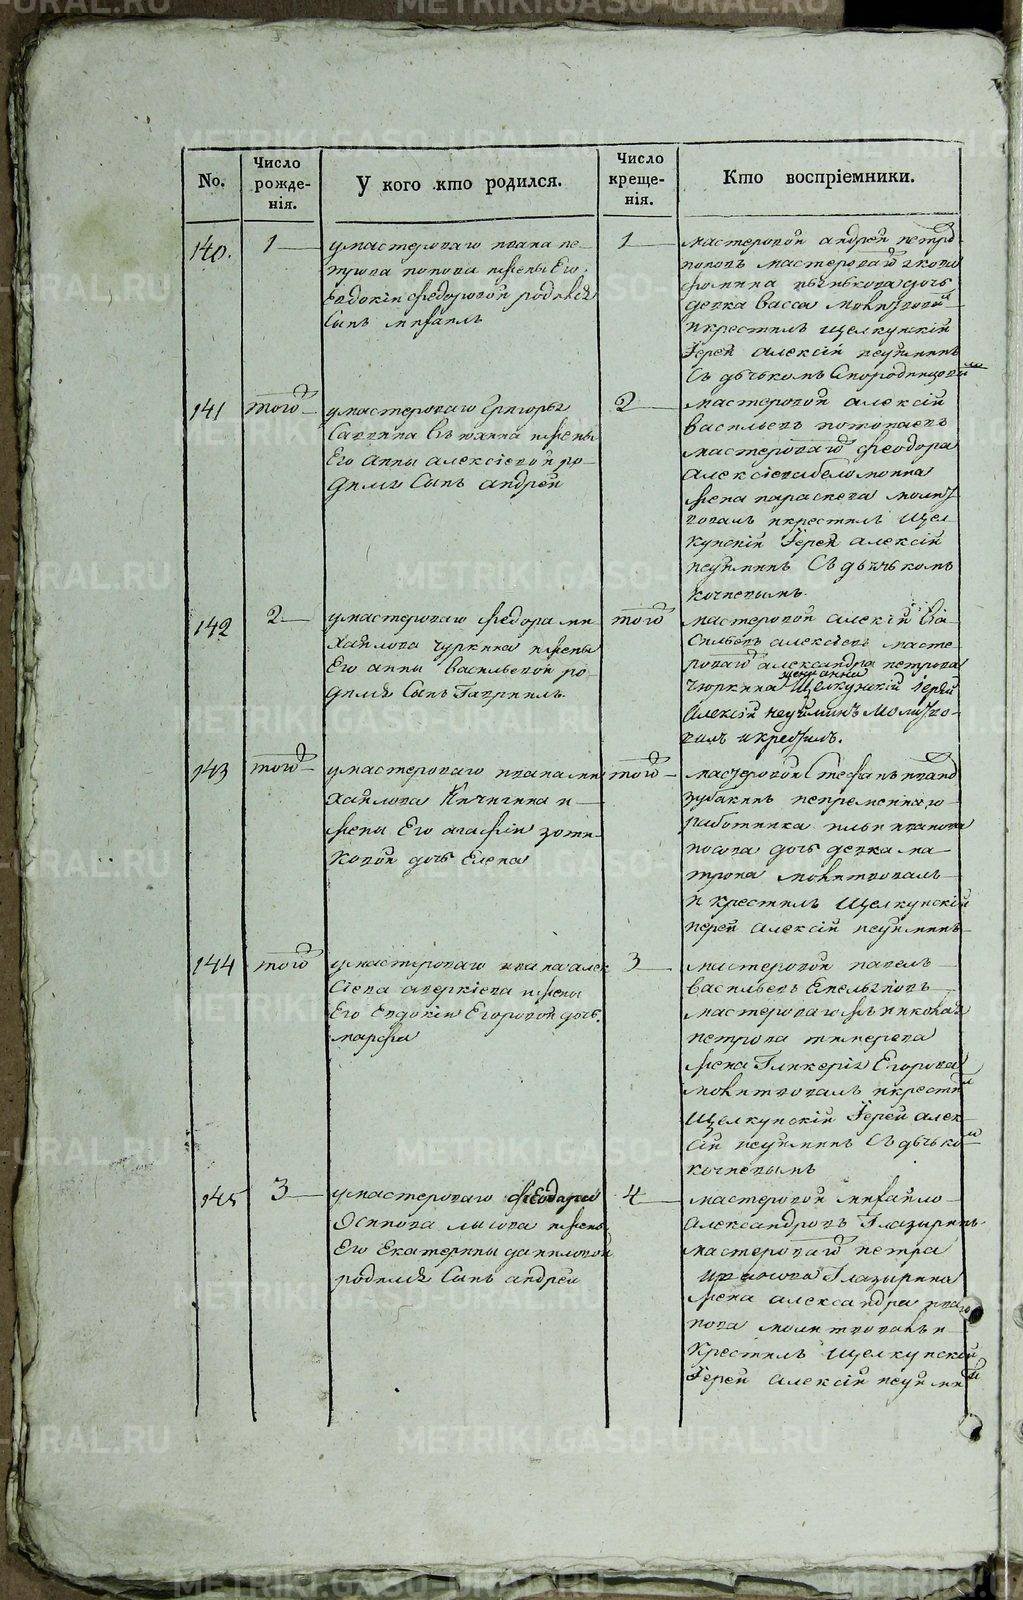 No.
Число рожденія.
У кого кто родился.
Число крещенія.
Кто воспріемники.
140.
1
умастероваго ивана пе-
трова попова ижены Его
Евдокіи федоровой родился
Сынъ михаилъ
1
мастеровой андрей петровъ
поповъ мастероваго
дочь
девка Васса молитвовалъ
икрестилъ щелкунскій
Іерей алексій неуйминъ
Съ дьячькомъ
141
того
умастероваго Григорья
Саввина ижены
Его анны алексіевой ро-
дился Сынъ андрей
2
мастеровой алексій
Васильевъ потопаевъ
мастероваго феодора
алексіева
жена параскева молит-
вовалъ икрестилъ щел-
кунскій Іерей алексій
неуйминъ Съ дьячькомъ
кочневымъ
142
2
умастероваго федора ми-
хайлова чуркина ижены
Его анны Васильевой ро-
дился Сынъ Гавріилъ
того
мастеровой алексій Ва-
сильевъ алексіевъ масте-
роваго александра петрова
чюркина жена анна щелкунскій іерей
алексій неуйминъ молитво-
валъ и крестилъ.
143
того
умастероваго ивана ми-
хайлова Кичигина и
жены Его агафіи зоти-
ковой дочь Елена
того
мастеровой Стефанъ иванов
зубакинъ непременнаго
работника ильи иванова
носова дочь девка ма-
трона молитвовалъ
и крестилъ щелкунскій
іерей алексій неуйминъ
144
того
умастероваго ивана алек
сіева аверкіева ижены
Его Евдокіи Егоровой дочь
марфа
3
мастеровой павелъ
Васильевъ Емельяновъ
мастероваго николая
петрова тимерева
жена Гликерія Егорова
молитвовалъ икрестил
щелкунскій Іерей алек-
сій неуйминъ Съ дьячько
кочневымъ
145
3
умастероваго феодора
Осипова лысова ижены
Его Екатерины даниловой
родился Сынъ андрей
4
мастеровой михайло
александровъ Глазыринъ
мастероваго петра
Глазырина
жена александра ива
нова молитвовалъ и
Крестилъ щелкунской
Іерей алексій неуймин
METRIKI.GASO-URAL.RU